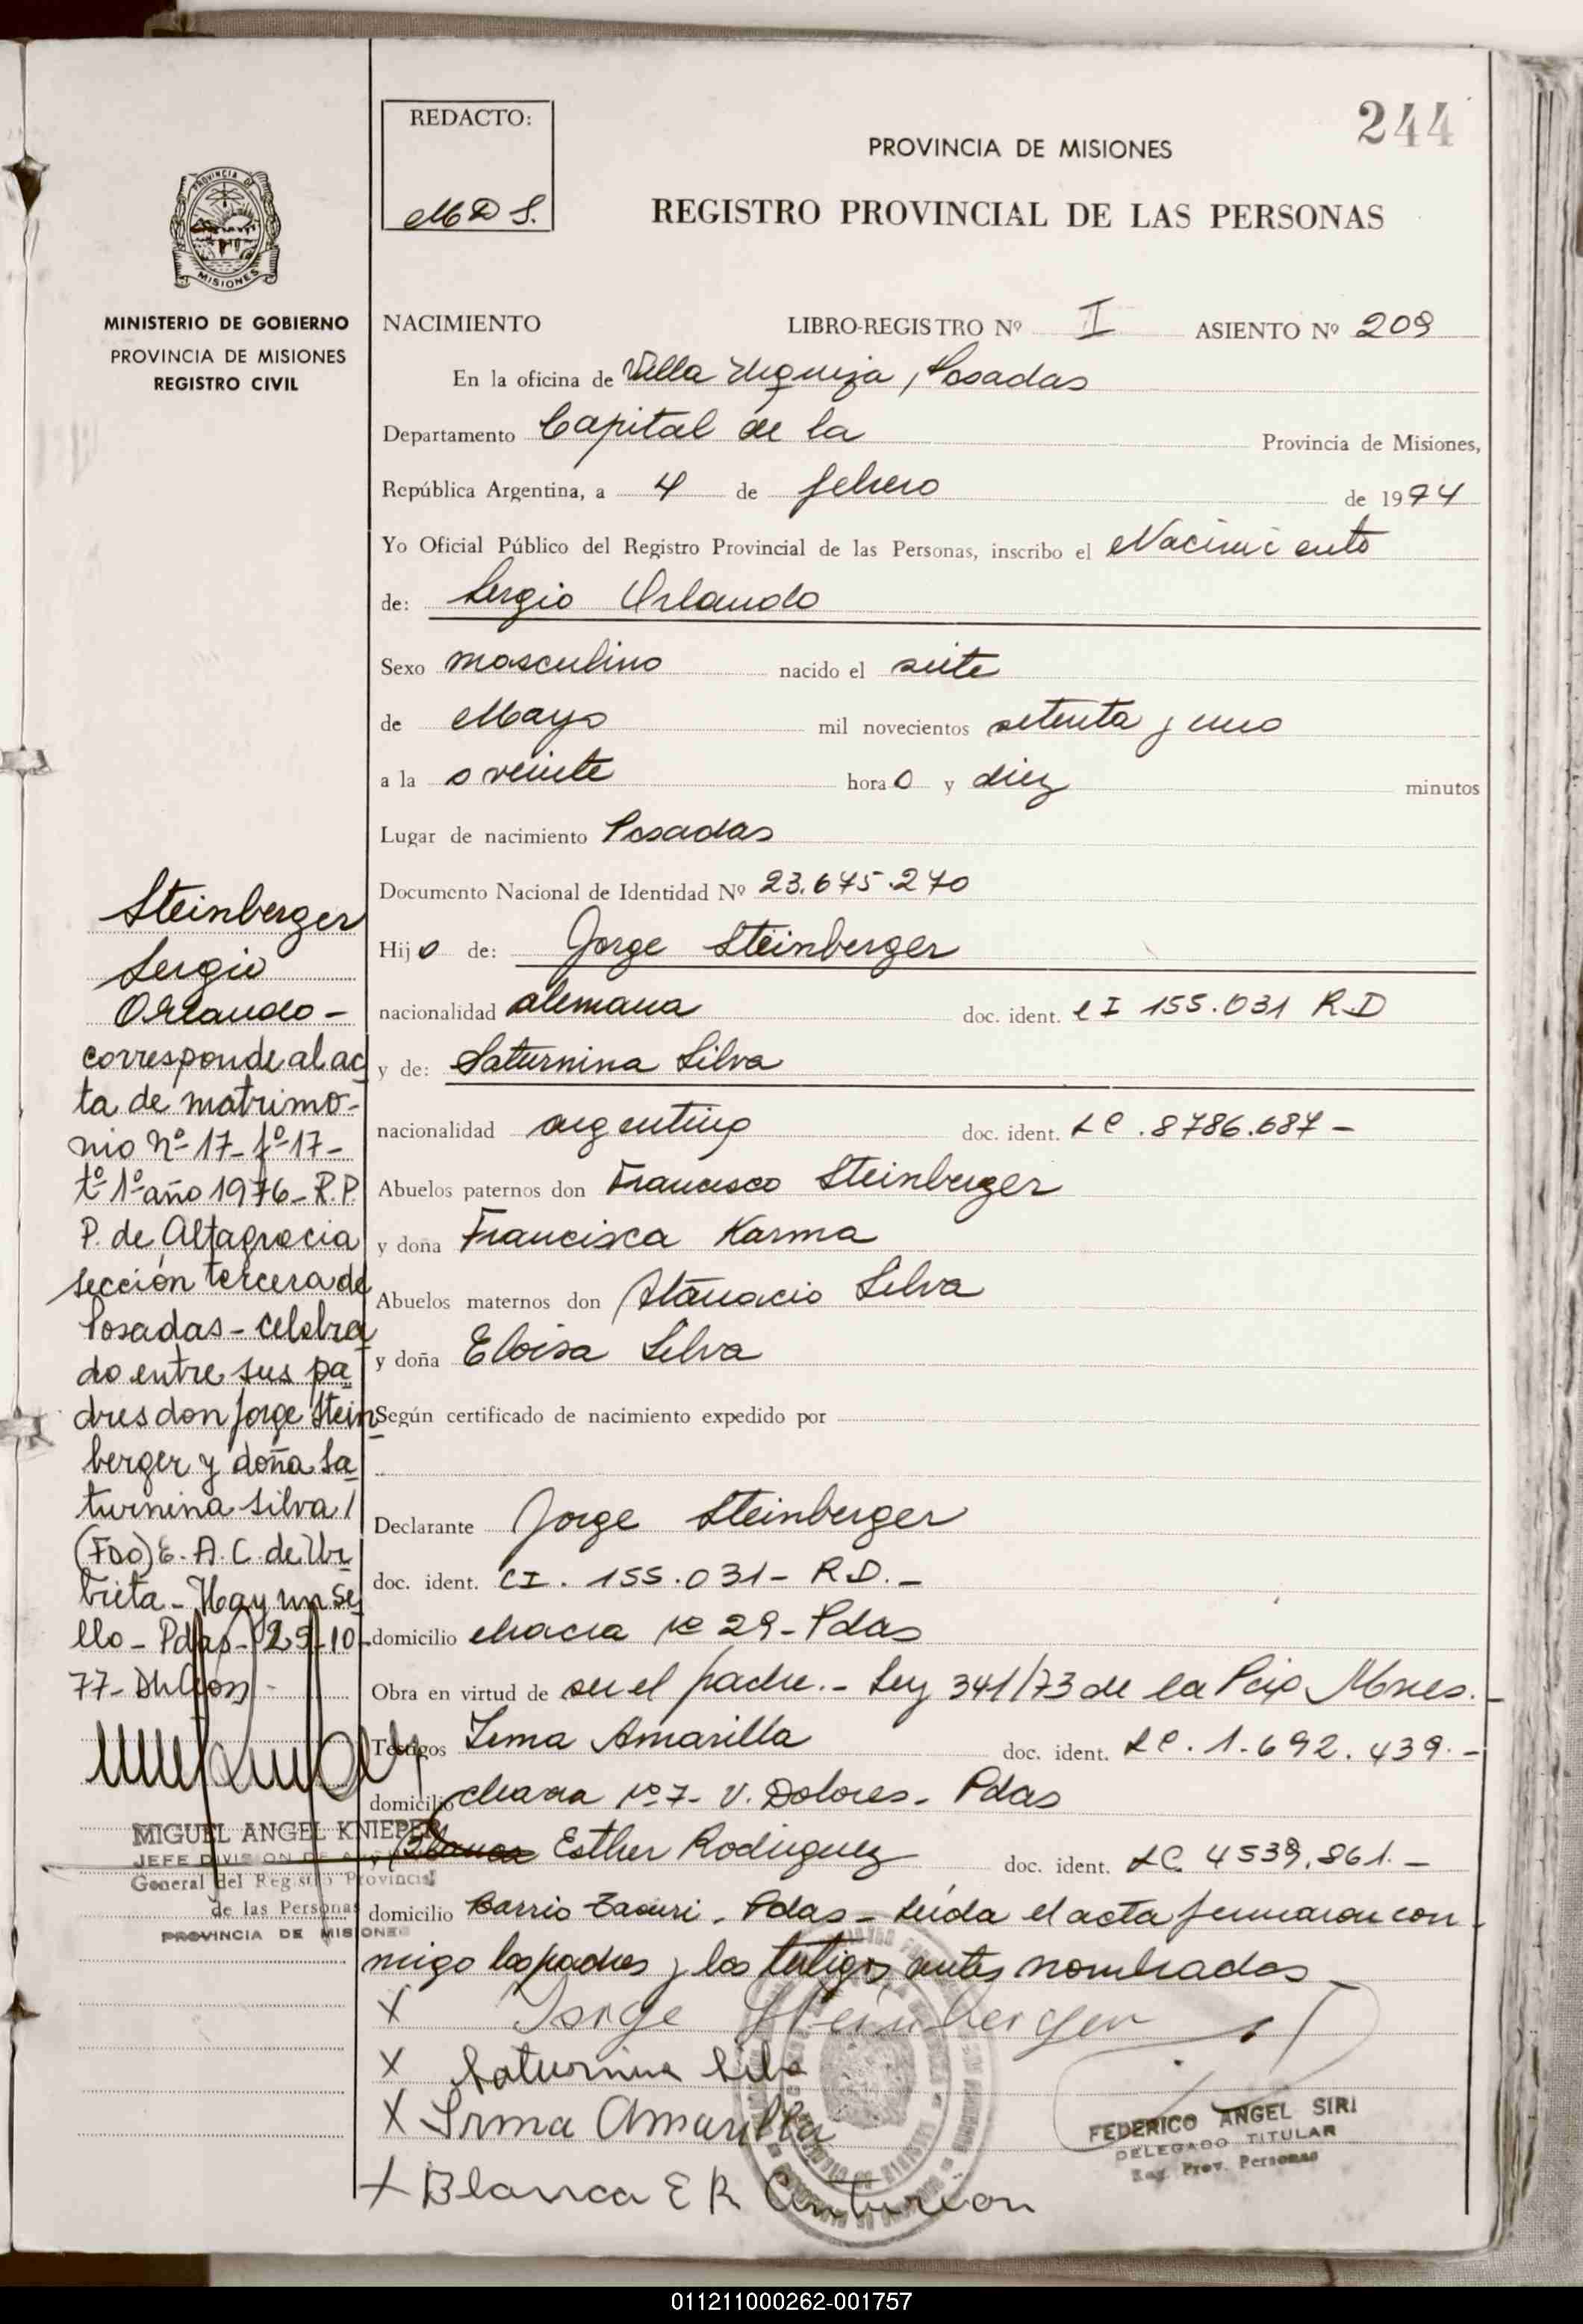 244
REDACTO:
MDS.
PROVINCIA DE MISIONES
REGISTRO PROVINCIAL DE LAS PERSONAS
PROVINCIA DE
MISIONES
MINISTERIO DE GOBIERNO
PROVINCIA DE MISIONES
REGISTRO CIVIL
NACIMIENTO LIBRO-REGISTRO Nº I ASIENTO Nº 209
En la oficina de Villa Urquiza, Posadas
Departamento Capital de la Provincia de Misiones,
República Argentina, a 4 de febrero de 1974
Yo Oficial Público del Registro Provincial de las Personas, inscribo el Nacimiento
de: Sergio Orlando
Sexo masculino nacido el siete
de Mayo mil novecientos setenta y uno
a la s veinte hora s y diez minutos
Lugar de nacimiento Posadas
Documento Nacional de Identidad Nº 23.675.270
Hij o de: Jorge Steinberger
nacionalidad alemana doc. ident. CI 155.031 R.D
y de: Saturnina Silva
nacionalidad argentina doc. ident. LC .8786.687 -
Abuelos paternos don Francisco Steinberger
y doña Francisca Karma
Abuelos maternos don Atanacio Silva
y doña Eloisa Silva
Según certificado de nacimiento expedido por
Declarante Jorge Steinberger
doc. ident. CI. 155.031- R.D.-
domicilio chacra Nº 29- Pdas
Obra en virtud de ser el padre.- Ley 341/73 de la Pcia Mnes.-
Testigos Irma Amarilla doc. ident. LC. 1.692.439.-
domicilio chacra Nº 7- V. Dolores- Pdas
y Blanca Esther Rodriguez doc. ident. LC 4539.861.-
domicilio Barrio - Pdas - Leída el acta firmaron con-
migo los padres y los testigos antes nombrados
X Jorge Steinberger
X Saturnina Silva
X Irma Amarilla
X Blanca E R Centurion
FEDERICO ANGEL SIRI
DELEGADO TITULAR
Reg. Prov. Personas
Steinberger
Sergio
Orlando -
corresponde al ac
ta de matrimo-
nio nº 17- fº 17-
tº 1º año 1976- R.P.
P. de Altagracia
sección tercera de
Posadas- celebra
do entre sus pa
dres don Jorge Stein
berger y doña Sa
turnina Silva/
(Fdo) E. A. C. de Ur
bieta - Hay un se
llo - Pdas- 25-10-
77-
MIGUEL ANGEL KNIEPER
JEFE DIVISION DE
General del Registro Provincial
de las Personas
PROVINCIA DE MISIONES
011211000262-001757